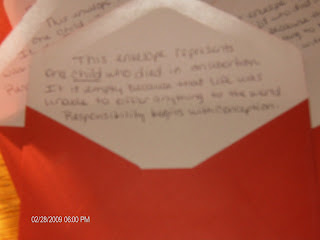 This envelope represents
one child who died in an abortion.
It is empty because that life was
unable to offer anything to the world
Responsibility begins with conception.
02/28/2009 06:00 PM